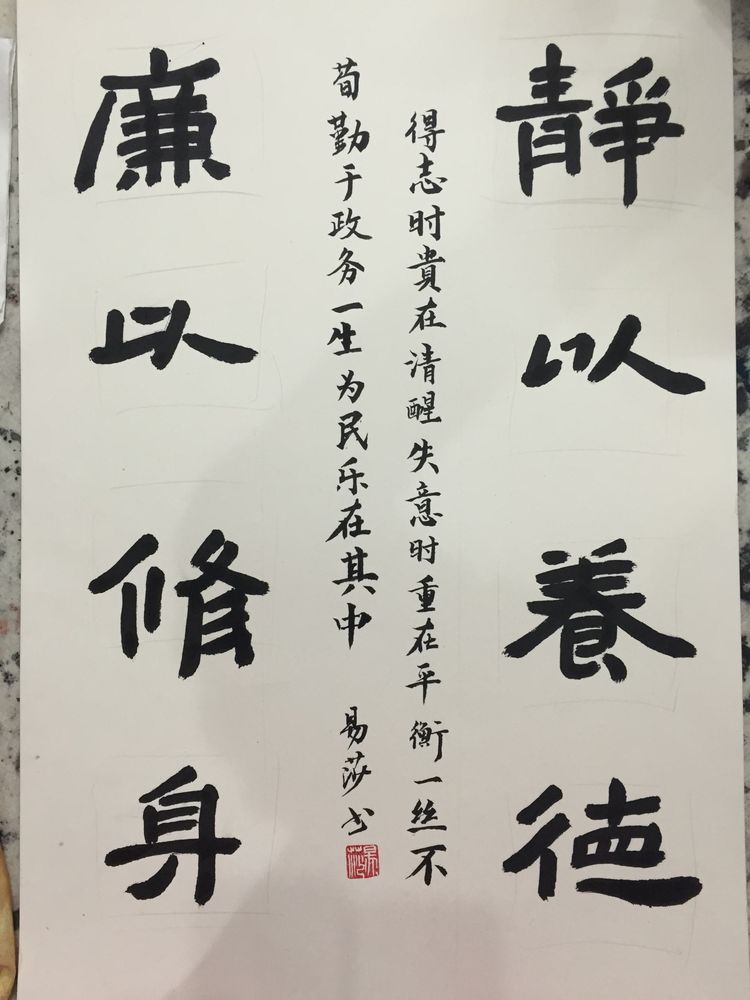 靜以養德
得志时貴在清醒失意时重在平衡一丝不
荀勤于政务一生为民乐在其中
易莎书
廉以修身